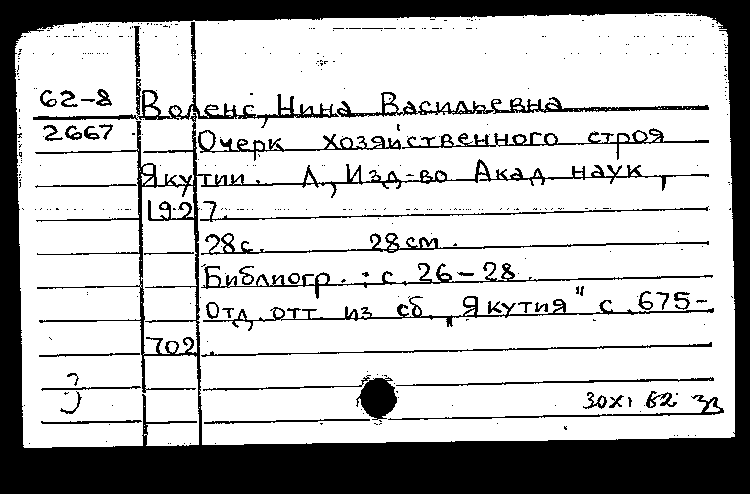 62-8 Воленс, Нина Васильевна
2667 Очерк хозяйственного строя
Якутии. Л., Изд-во Акад. наук,
1927.
28с. 28см.
Библиогр.: с. 26-28.
Отд. отт. из сб. „Якутия" с. 675-
702.
30XI 62